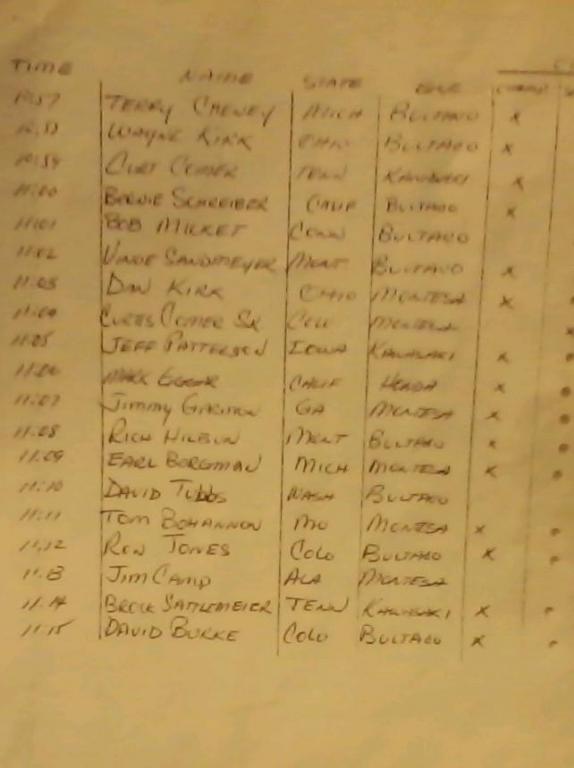 TIME NAME STATE BIKE
10:57 TERRY CHENEY MICH BULTACO X
10:58 WAYNE KIRK OHIO BULTACO X
10:59 CURT COMER TENN KAWASAKI X
11:00 BERNIE SCHREIBER CALIF BULTACO X
11:01 BOB MICKET CONN BULTACO
11:02 VINCE SANDMEYER MONT BULTACO X
11:03 DAN KIRK OHIO MONTESA X
11:04 CURTIS COMER SR COLO MONTESA
11:05 JEFF PATTERSON IOWA KAWASAKI X
11:06 MARK EGGAR CALIF HONDA X
11:07 JIMMY GA MONTESA X
11:08 RICH HILBUN MONT BULTACO X
11:09 EARL BORGMAN MICH MONTESA X
11:10 DAVID TUBBS WASH BULTACO
11:11 TOM BOHANNON MO MONTESA X
11:12 RON JONES COLO BULTACO X
11:13 JIM CAMP ALA MONTESA
11:14 BROCK SATTLEMEIER TENN KAWASAKI X
11:15 DAVID BURKE COLO BULTACO X